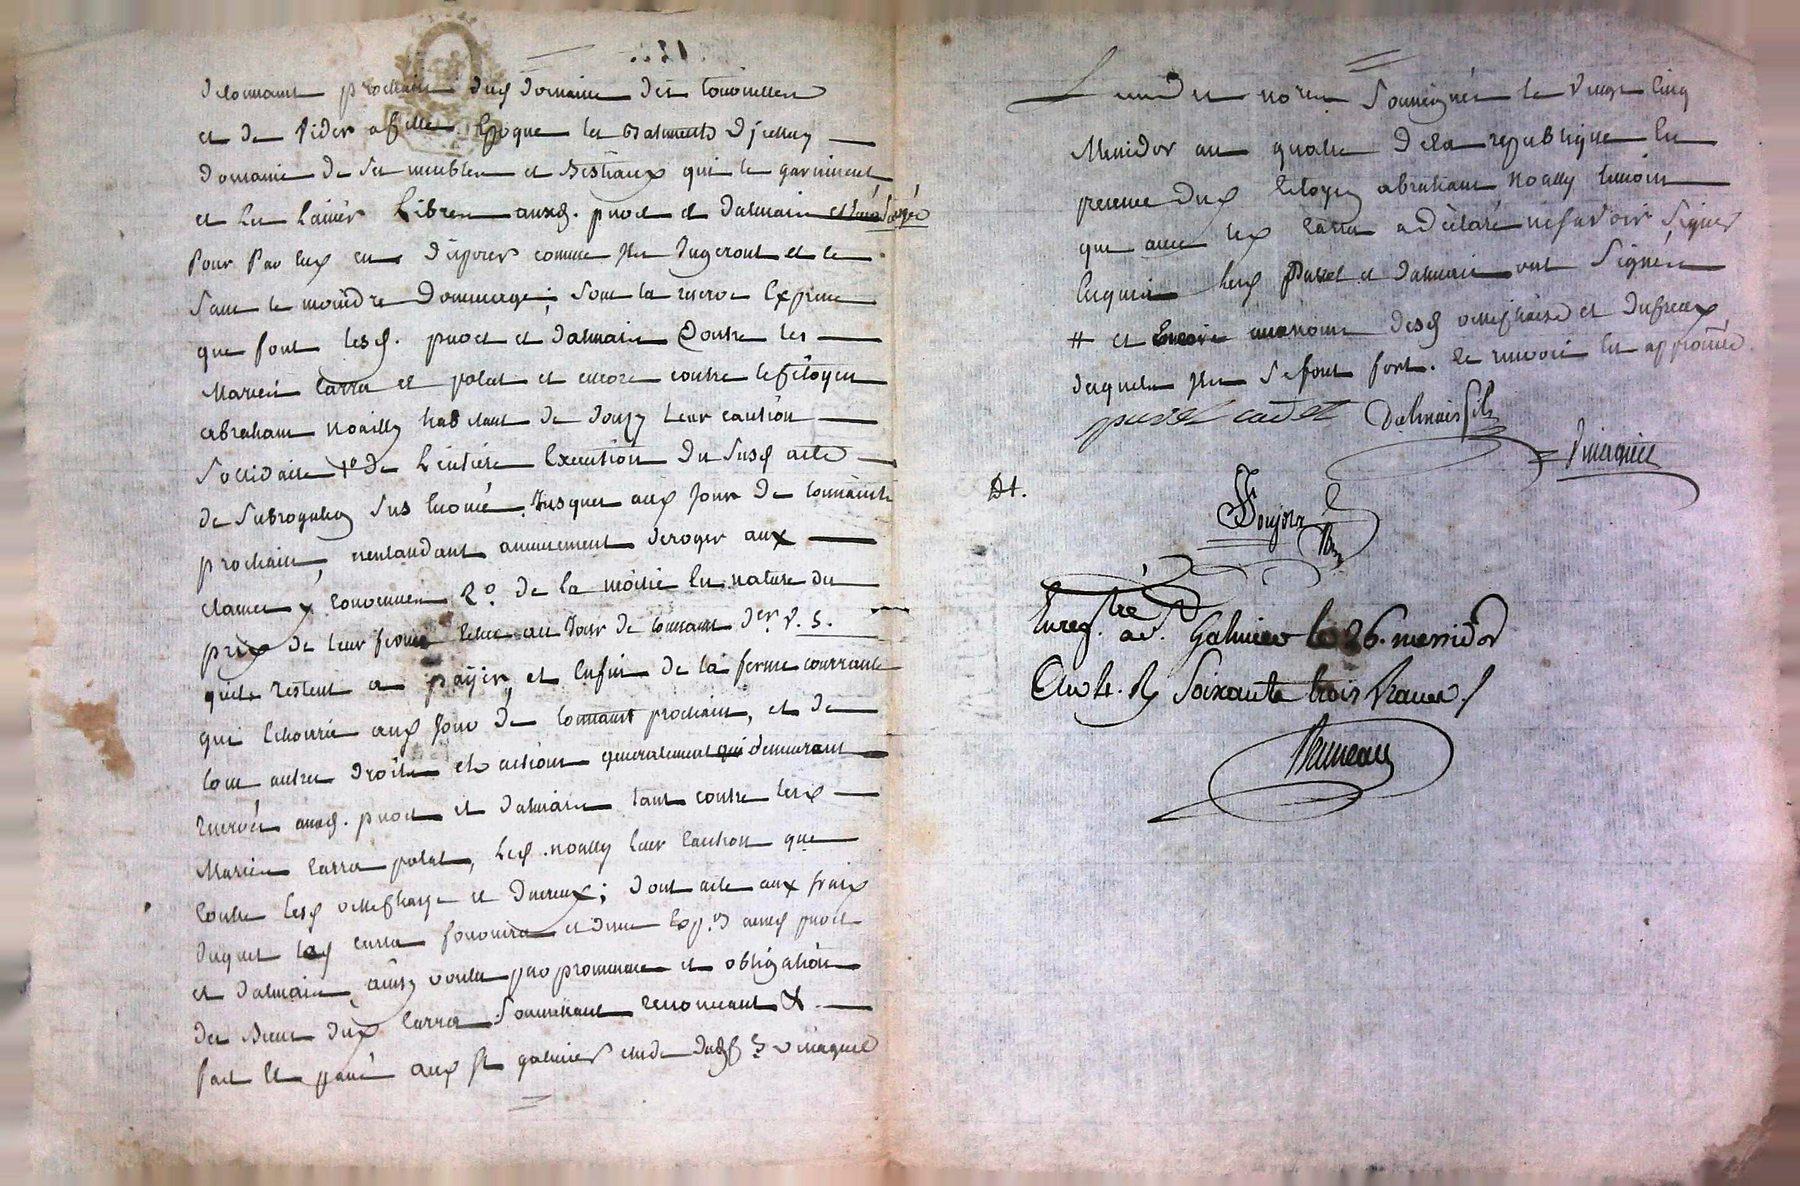 prochain dud domaine des
et de vider a Epoque les Batiments dicelluy
domaine de ses meubles et Bestiaux qui le garnissent
et les laisser Libres auxd. puvet et dalmais
Pour Par eux en disposer comme ils Jugeront et ce
sans le moindre dommage; sous la reserve Expresse
que font lesd. puvet et dalmais Contre les
Mariés carra et polat et encore contre le Citoyen
abraham noailly habitant de donzy leur caution
Sollidaire 1º de Lentiére Execution du Susd acte
de Subrogation sus Enoncé Jusques aux Jour de
prochain, nentendant aucunement deroger aux
clauses y convenues 2º. de la moitie En nature du
prix de leur ferme au Jour de der v. s.
quils restent a payer, et Enfin de la ferme courrante
qui aux Jour de prochain, et de
tous autres droits et actions generalement qui demeurent
reservés auxd. puvet et dalmais tant contre lesd
Mariés carra polat, led. noailly leur caution que
Contre lesd et Ducreux; dont acte aux frais
duquel led carra fournira et dune Exp.on auxd puvet
et dalmais, ainsy voulu par promesse et obligation
des Biens dud carra Soumettant renonceant &.
fait Et passé aux st galmier etude dud vinagnet
L'un des notres Soussignés le vingt Cinq
Messidor an quatre de la republique En
presence dud Citoyen abraham noailly temoin
que avec led carra a déclaré ne savoir Signer
Enquis Lesd Puvet et dalmais ont Signés
# et aunom desd et Ducreux
desquels ils Se font fort. le renvoi Est approuvé
puvet cadet Dalmais fils
Enreg.tré a St. Galmier le 26. messidor
an 4. R Soixante trois francs /
Bruneau